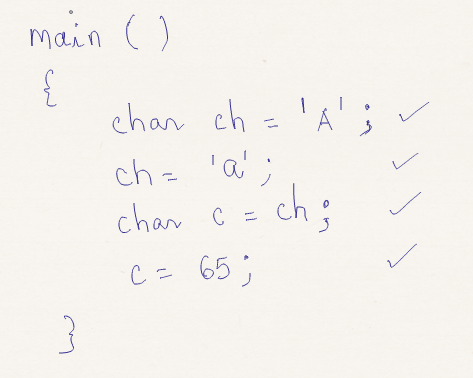 main ( )
{
char ch = 'A' ; ✓
ch = 'a' ; ✓
char c = ch ; ✓
c = 65 ; ✓
}